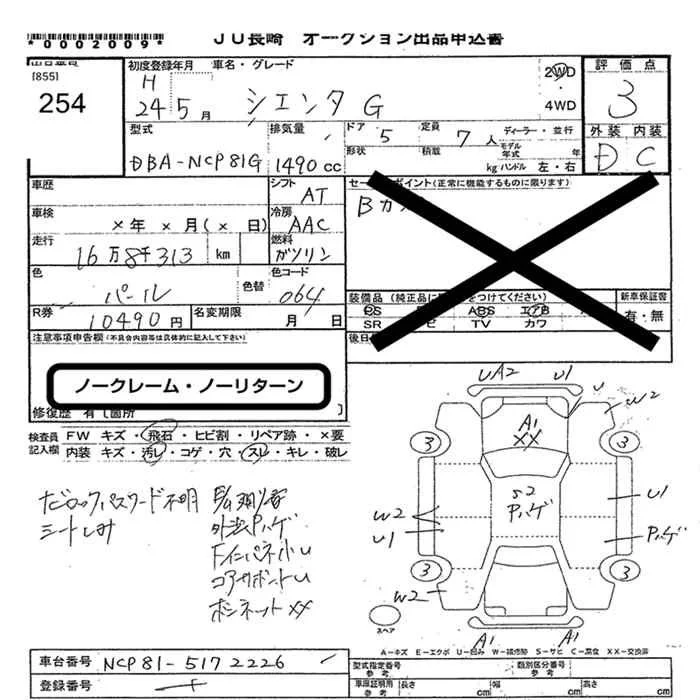 *0002009*
JU長崎 オークション出品申込書
[855]
254
初度登録年月 車名・グレード
H
24 5月 シエンタ G
2WD
4WD
評価点
3
型式 排気量 ドア 5 定員 7人 ディーラー・並行
DBA-NCP81G 1490cc
形状 積載 kg モデル年式 年 ハンドル 左・右
外装 内装
D C
車歴
シフト AT
セールスポイント(正常に機能するものに限ります)
車検 ×年 ×月(× 日)
冷房 AAC
走行 16万8千313 km
燃料 ガソリン
色 パール 色替
色コード 064
装備品 (純正品に○をつけてください) 新車保証書
PS ABS エアB 有・無
SR TV カワ
R券 10490円 名変期限 月 日
注意事項申告欄(不具合内容等は具体的に記入して下さい)
後日
ノークレーム・ノーリターン
修復歴 有〔箇所 〕
検査員記入欄 FW キズ・飛石・ヒビ割・リペア跡・×要
内装 キズ・汚レ・コゲ・穴・スレ・キレ・破レ
パスワード不明
シートしみ
外装Pハゲ
コアサポートU
ボンネットXX
UA2 U1 U W2
A1
XX
3 3
S2
Pハゲ
U1
W2
U1
Pハゲ
3 3
W2
A1 A1
スペア
A－キズ E－エクボ U－凹み W－補修跡 S－サビ C－腐食 XX－交換済
車台番号 NCP81-5172226
登録番号
型式指定番号 参考 類別区分番号 参考
車庫証明用 参考 長さ cm 幅 cm 高さ cm